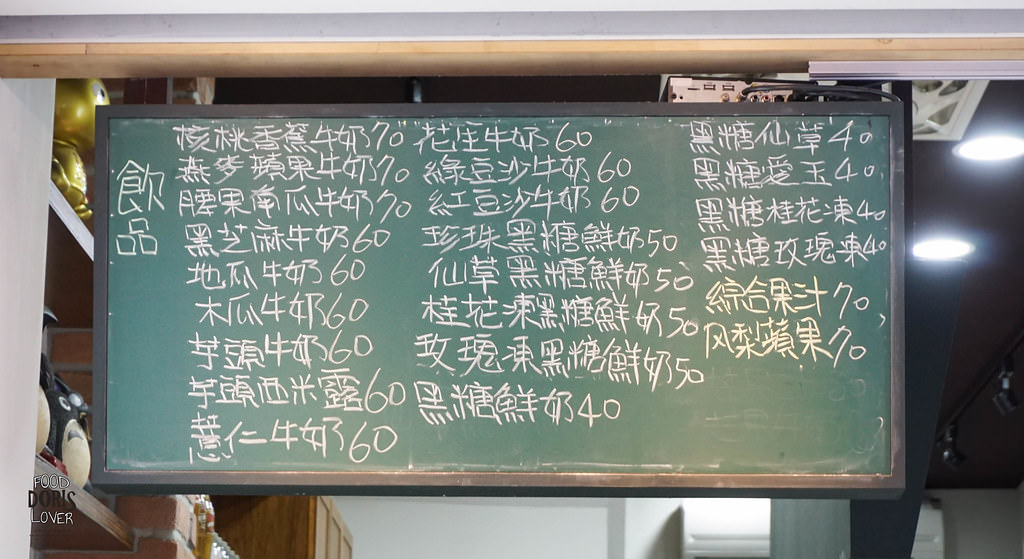 飲品
核桃香蕉牛奶70
燕麥蘋果牛奶70
腰果南瓜牛奶70
黑芝麻牛奶60
地瓜牛奶60
木瓜牛奶60
芋頭牛奶60
芋頭西米露60
薏仁牛奶60
花生牛奶60
綠豆沙牛奶60
紅豆沙牛奶60
珍珠黑糖鮮奶50
仙草黑糖鮮奶50
桂花凍黑糖鮮奶50
玫瑰凍黑糖鮮奶50
黑糖鮮奶40
黑糖仙草40
黑糖愛玉40
黑糖桂花凍40
黑糖玫瑰凍40
綜合果汁70
风梨蘋果70
FOOD
DORIS
LOVER